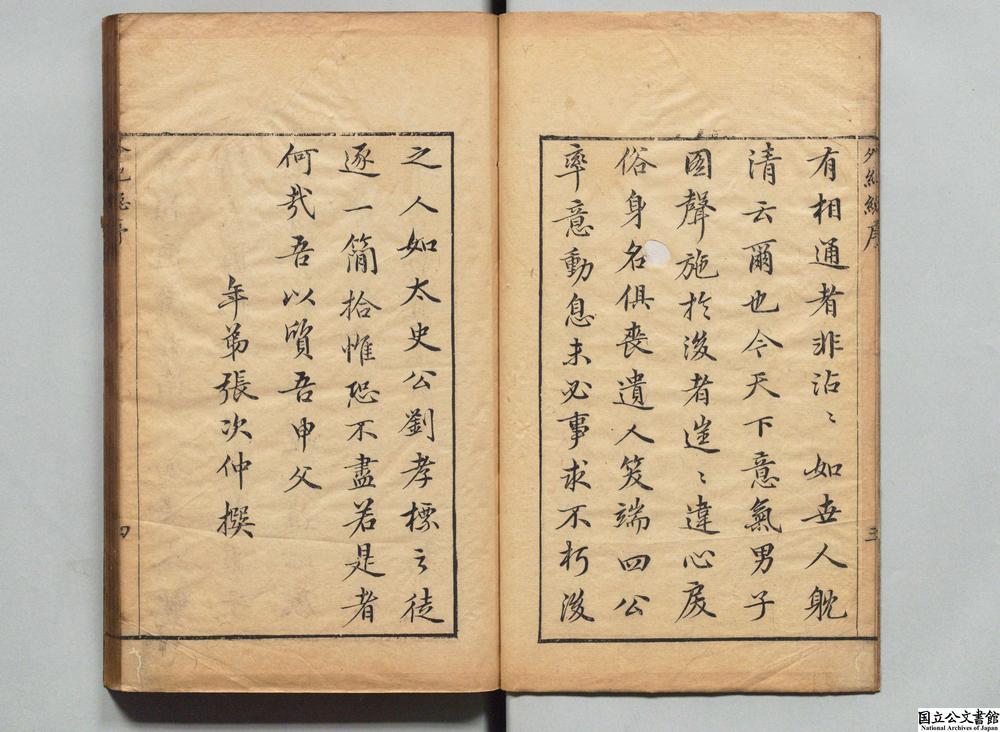 有相通者非沾〻如世人躭
清云爾也今天下意氣男子
圖聲施於後者遑〻違心戾
俗身名俱喪遺人笑端四公
率意動息未必事求不朽後
三
之人如太史公劉孝標之徒
逐一簡拾惟恐不盡若是者
何哉吾以質吾申父
年弟張次仲撰
四
国立公文書館
National Archives of Japan